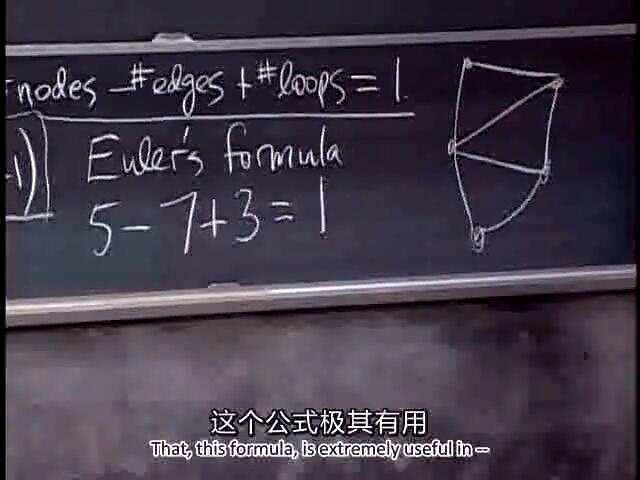 #nodes - #edges + #loops = 1.
-1)
Euler's formula
5 - 7 + 3 = 1
这个公式极其有用
That, this formula, is extremely useful in --